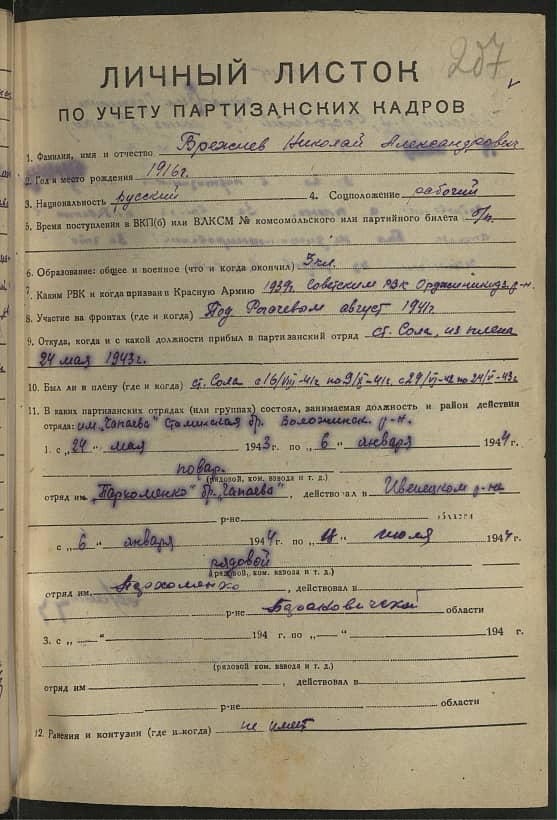 257
ЛИЧНЫЙ ЛИСТОК
ПО УЧЕТУ ПАРТИЗАНСКИХ КАДРОВ
1. Фамилия, имя и отчество Брежнев Николай Александрович
2. Год и место рождения 1916 г.
3. Национальность русский 4. Соцположение рабочий
5. Время поступления в ВКП(б) или ВЛКСМ № комсомольского или партийного билета б/п.
6. Образование: общее и военное (что и когда окончил) 3 кл.
7. Каким РВК и когда призван в Красную Армию 1939г. Советским РВК Орджоникидз. р-н.
8. Участие на фронтах (где и когда) Под Рогачевым август 1941г
9. Откуда, когда и с какой должности прибыл в партизанский отряд ст. Сола, из плена
24 мая 1943г.
10. Был ли в плену (где и когда) ст. Сола с 16/VIII-41г по 9/X-41г. с 29/VI-42 по 24/V-43г
11. В каких партизанских отрядах (или группах) состоял, занимаемая должность и район действия
отряда: им. "Чапаева" Сталинская бр. Воложинск. р-н.
1. с „24" мая 1943 г. по „6" января 1944 г.
повар.
(рядовой, ком. взвода и т. д.)
отряд им. „Пархоменко" бр. „Чапаева", действовал в Ивенецком р-не
р-не области
с „6" января 1944 г. по „ " июля 1944 г.
рядовой
(рядовой, ком. взвода и т. д.)
отряд им. Пархоменко, действовал в
р-не Барановичской области
3. с „—" 194 г. по „—" 194 г.
(рядовой, ком. взвода и т. д.)
отряд им , действовал в
р-не области
12. Ранения и контузии (где и когда) не имеет